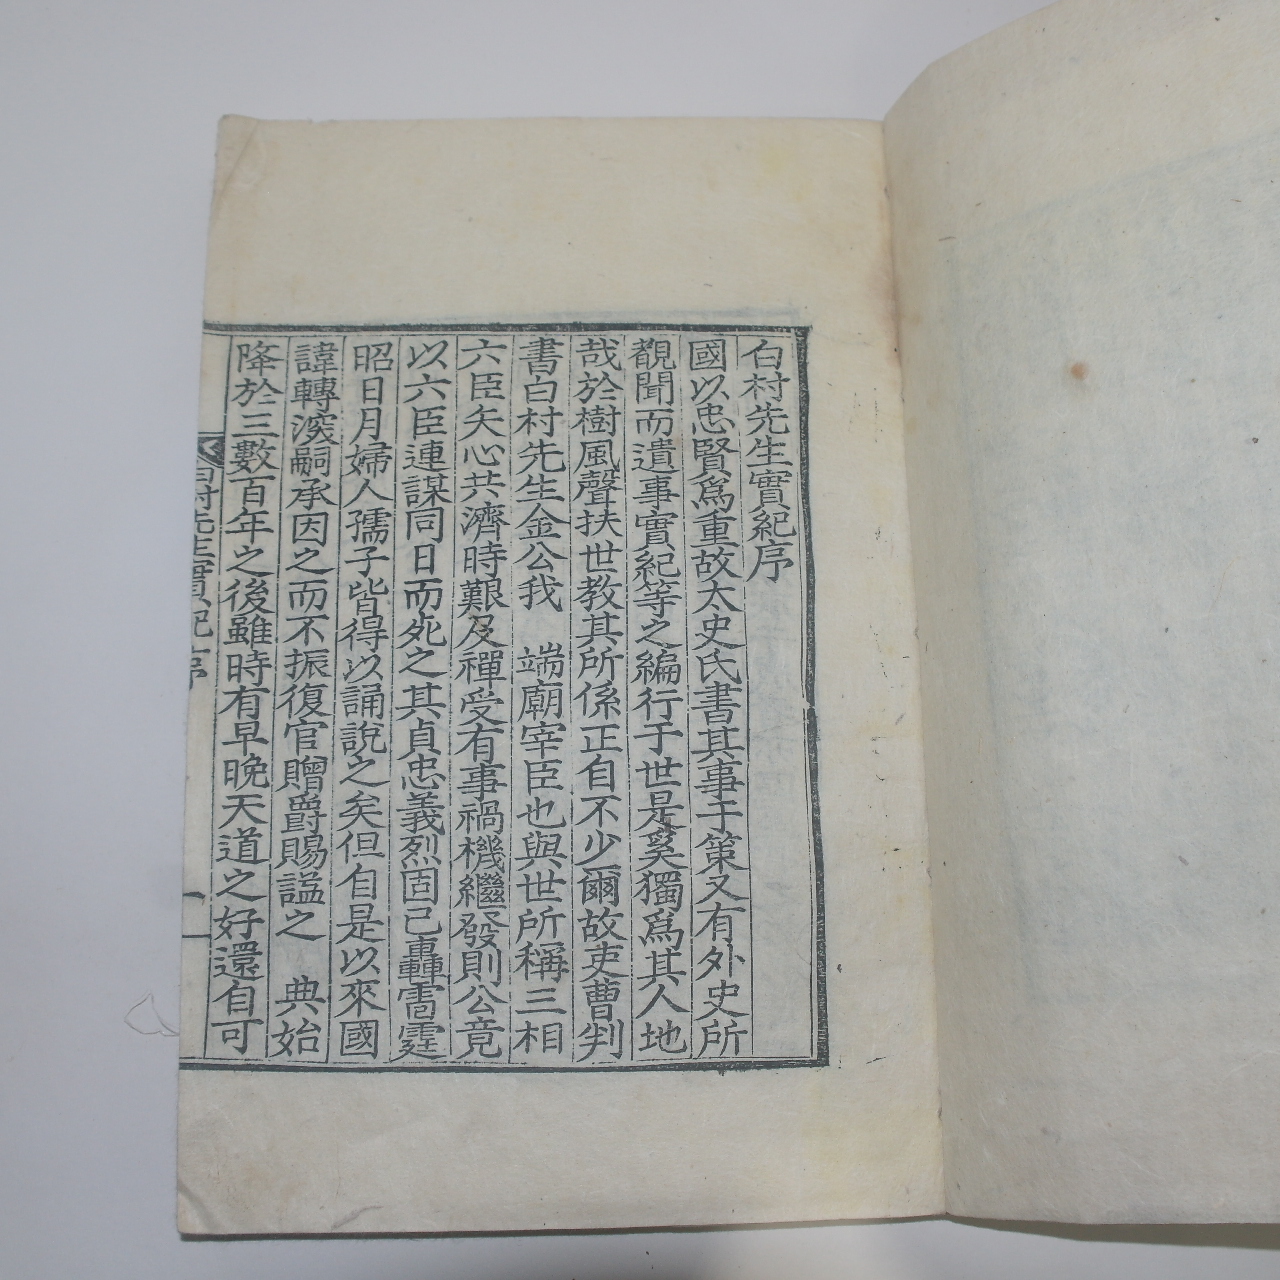 白村先生實紀序
國以忠賢爲重故太史氏書其事于策又有外史所
覩聞而遺事實紀等之編行于世是奚獨爲其人地
哉於樹風聲扶世教其所係正自不少爾故吏曹判
書白村先生金公我 端廟宰臣也與世所稱三相
六臣矢心共濟時艱及禪受有事禍機繼發則公竟
以六臣連謀同日而死之其貞忠義烈固已轟雷霆
昭日月婦人孺子皆得以誦說之矣但自是以來國
諱轉深嗣承因之而不振復官贈爵賜諡之 典始
降於三數百年之後雖時有早晚天道之好還自可
白村先生實紀序
一